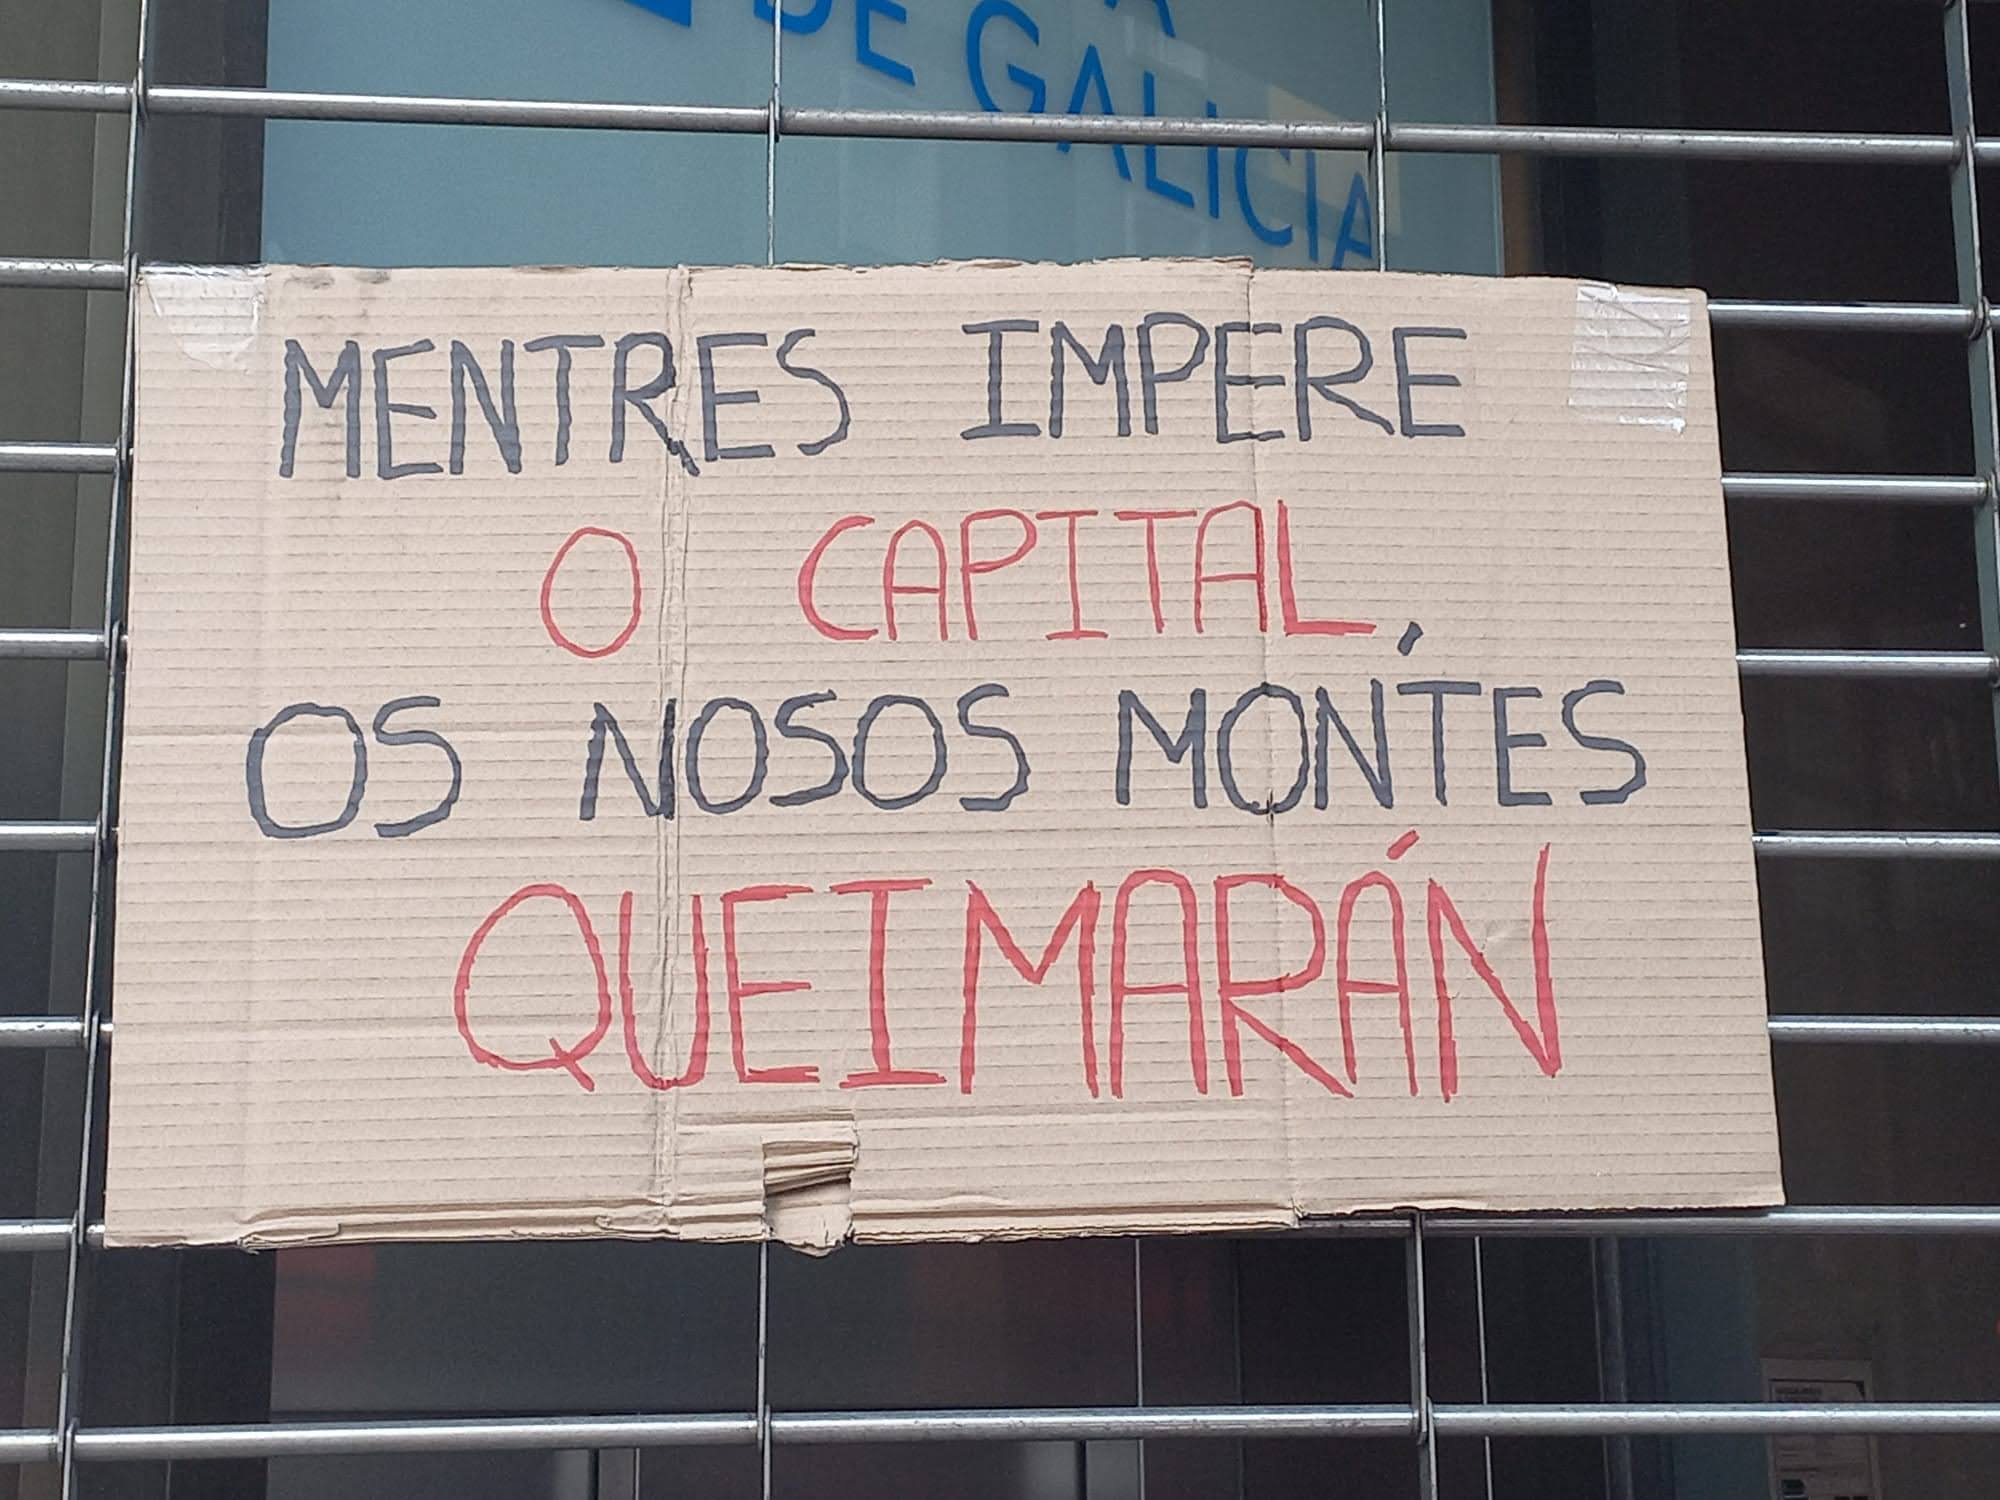 DE GALICIA
MENTRES IMPERE
O CAPITAL,
OS NOSOS MONTES
QUEIMARÁN